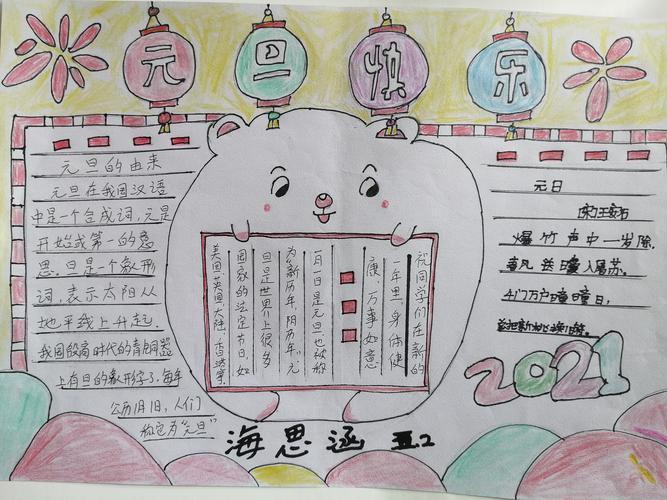 元旦快乐
元旦的由来
元旦在我国汉语
中是一个合成词,元是
开始或第一的意
思.旦是一个象形
词,表示太阳从
地平线上升起.
我国殷商时代的青铜器
上有旦的象形字了.每年
公历1月1日,人们
称它为“元旦”
祝同学们在新的
一年里,身体健
康,万事如意
一月一日是元旦,也被称
为新历年,阳历年“元
旦是世界上很多
国家的法定节日,如
美国,英国,大陆,香港等.
元日
(宋)王安石
爆竹声中一岁除,
春风送暖入屠苏.
千门万户曈曈日,
总把新桃换旧符.
2021
海思涵 五.2